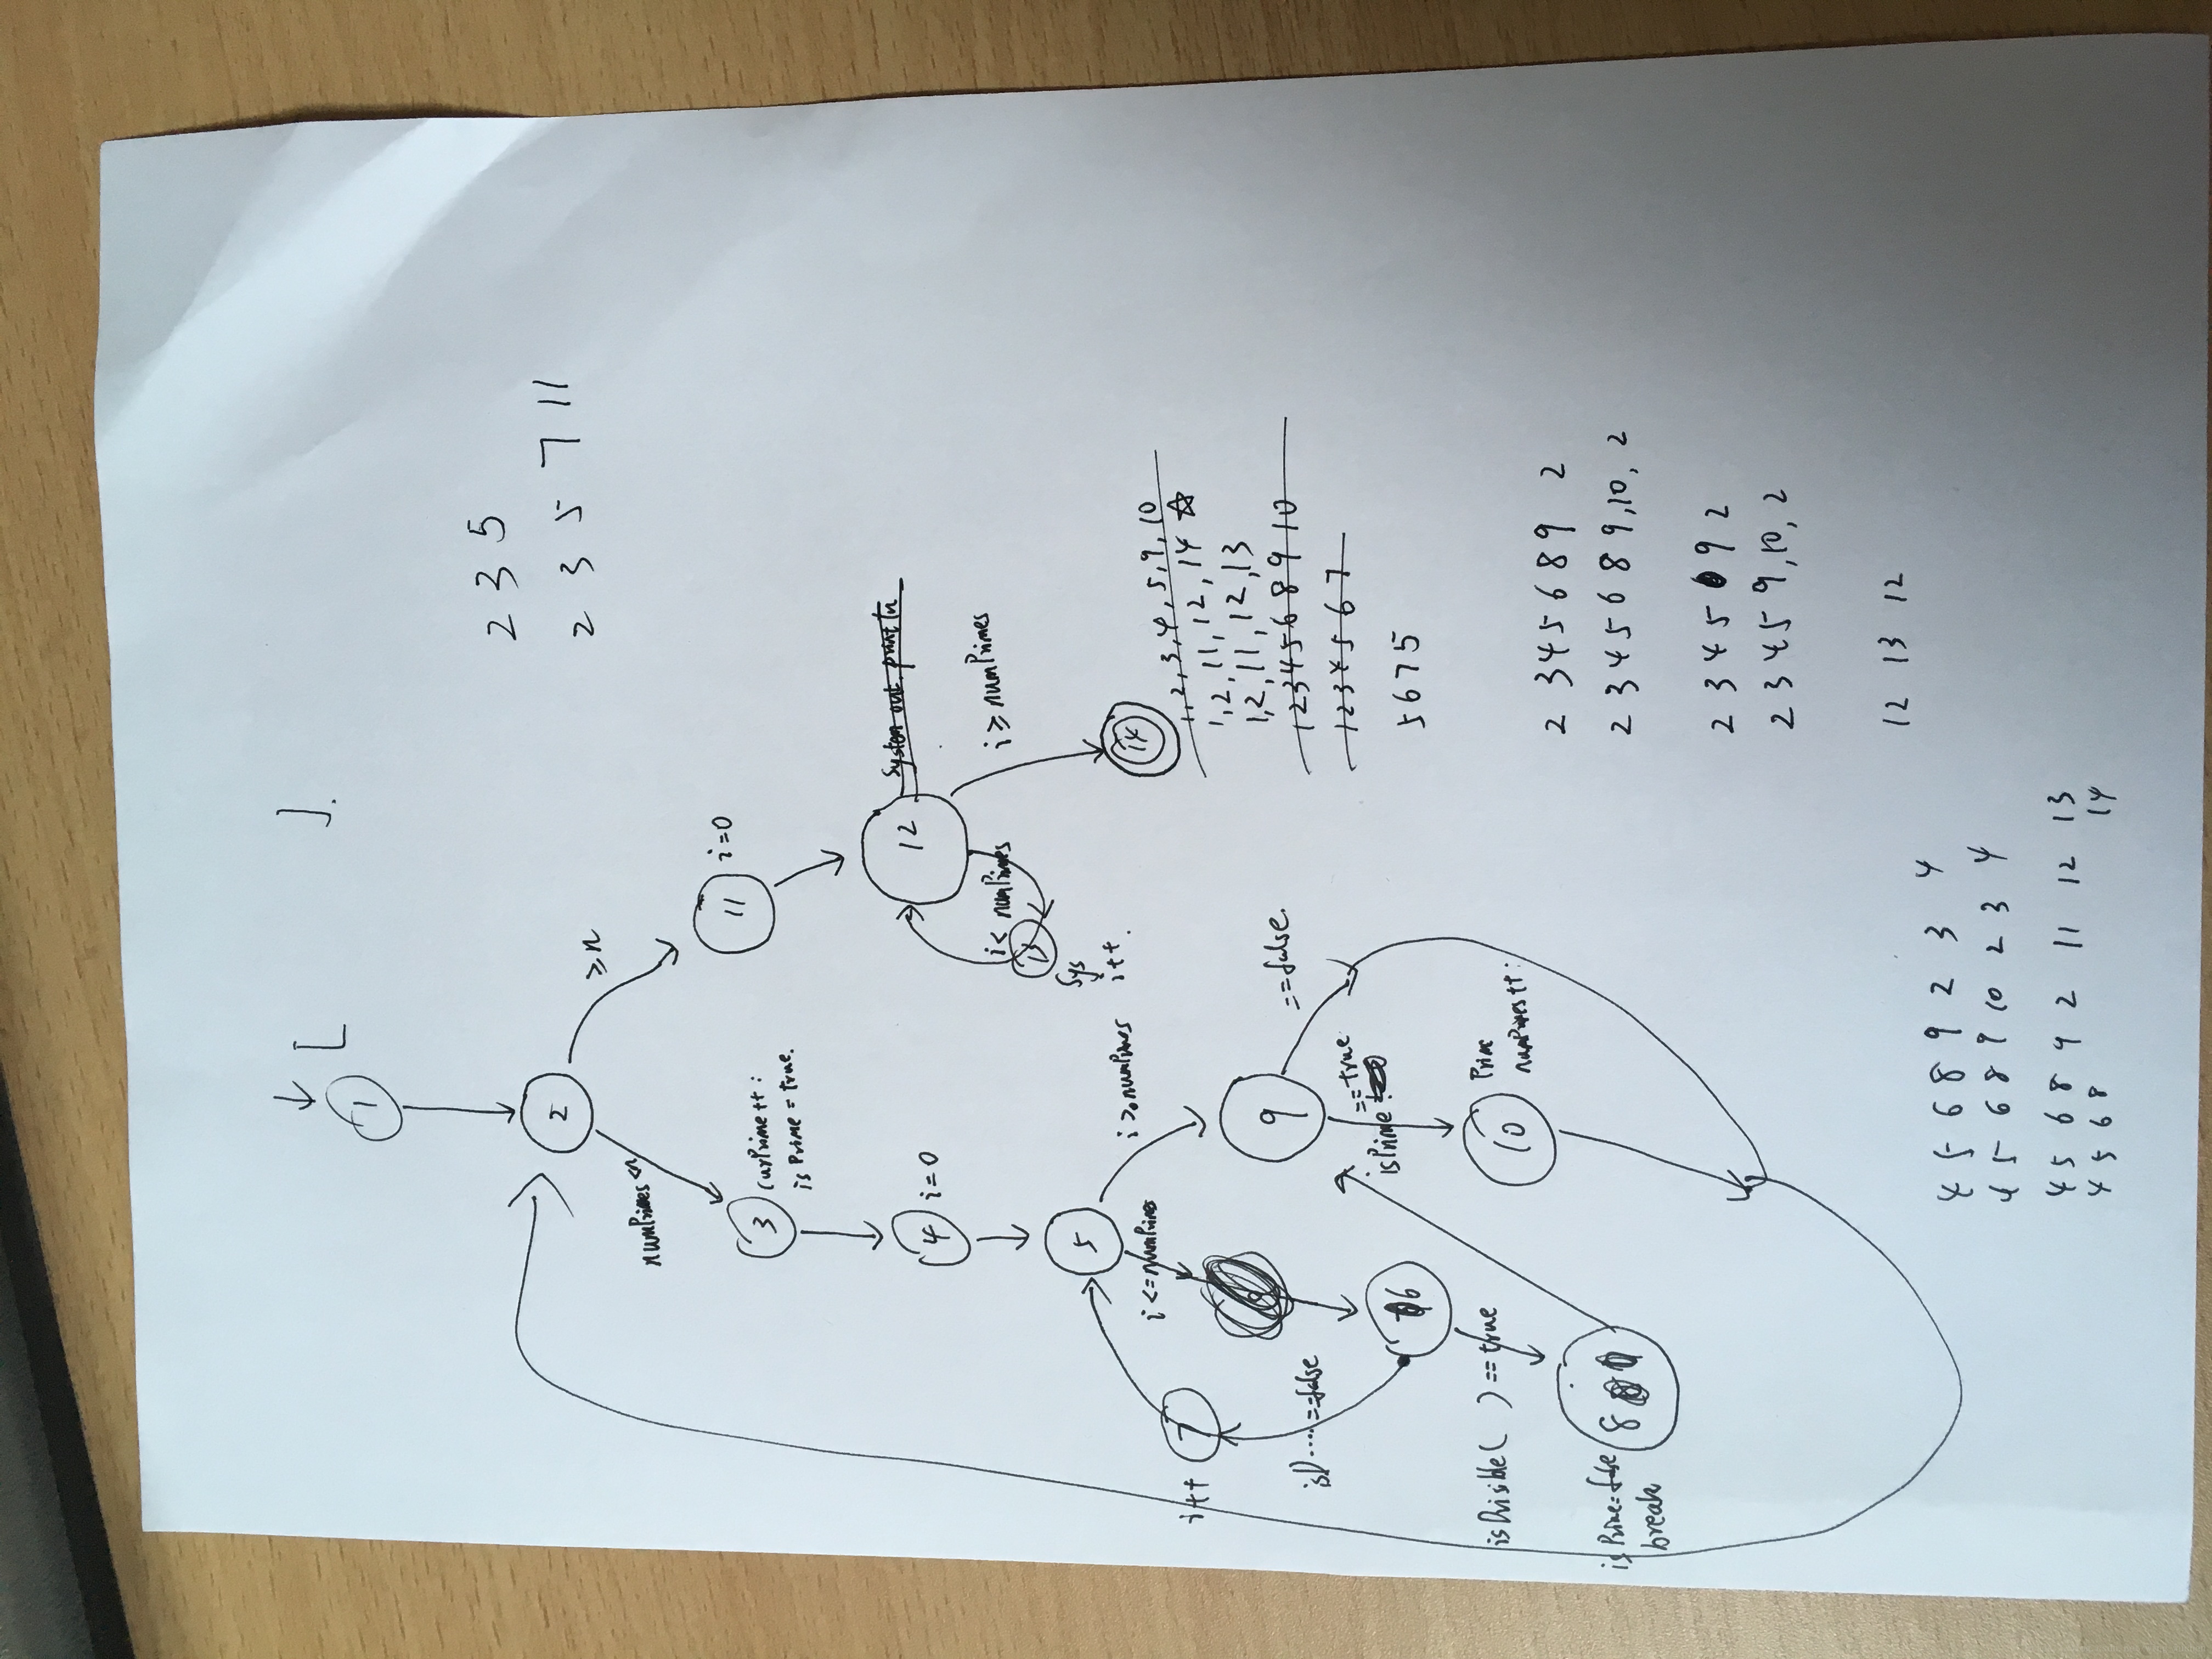 [ ]
1
2 3 5
2 3 5 7 11
2
≥n
numPrimes<n
3
curPrime++;
isPrime=true.
11
i=0
4
i=0
12
System.out.println
i<numPrimes
i≥numPrimes
13
Sys
i++.
14
5
i<=numPrimes
i≥numPrimes
7
i++
6
isD.....==false
isDivisible( )==true
8
isPrime=false
break
9
==false.
isPrime ==true
10
Prime
numPrimes++;
1,2,3,4,5,9,10
1,2,11,12,14 ☆
1,2,11,12,13
1 2 3 4 5 6 8 9 10
1 2 3 4 5 6 7
5 6 7 5
2 3 4 5 6 8 9 2
2 3 4 5 6 8 9,10,2
2 3 4 5 9 2
2 3 4 5 9,10,2
12 13 12
4 5 6 8 9 2 3 4
4 5 6 8 9 10 2 3 4
4 5 6 8 9 2 11 12 13
4 5 6 8 14